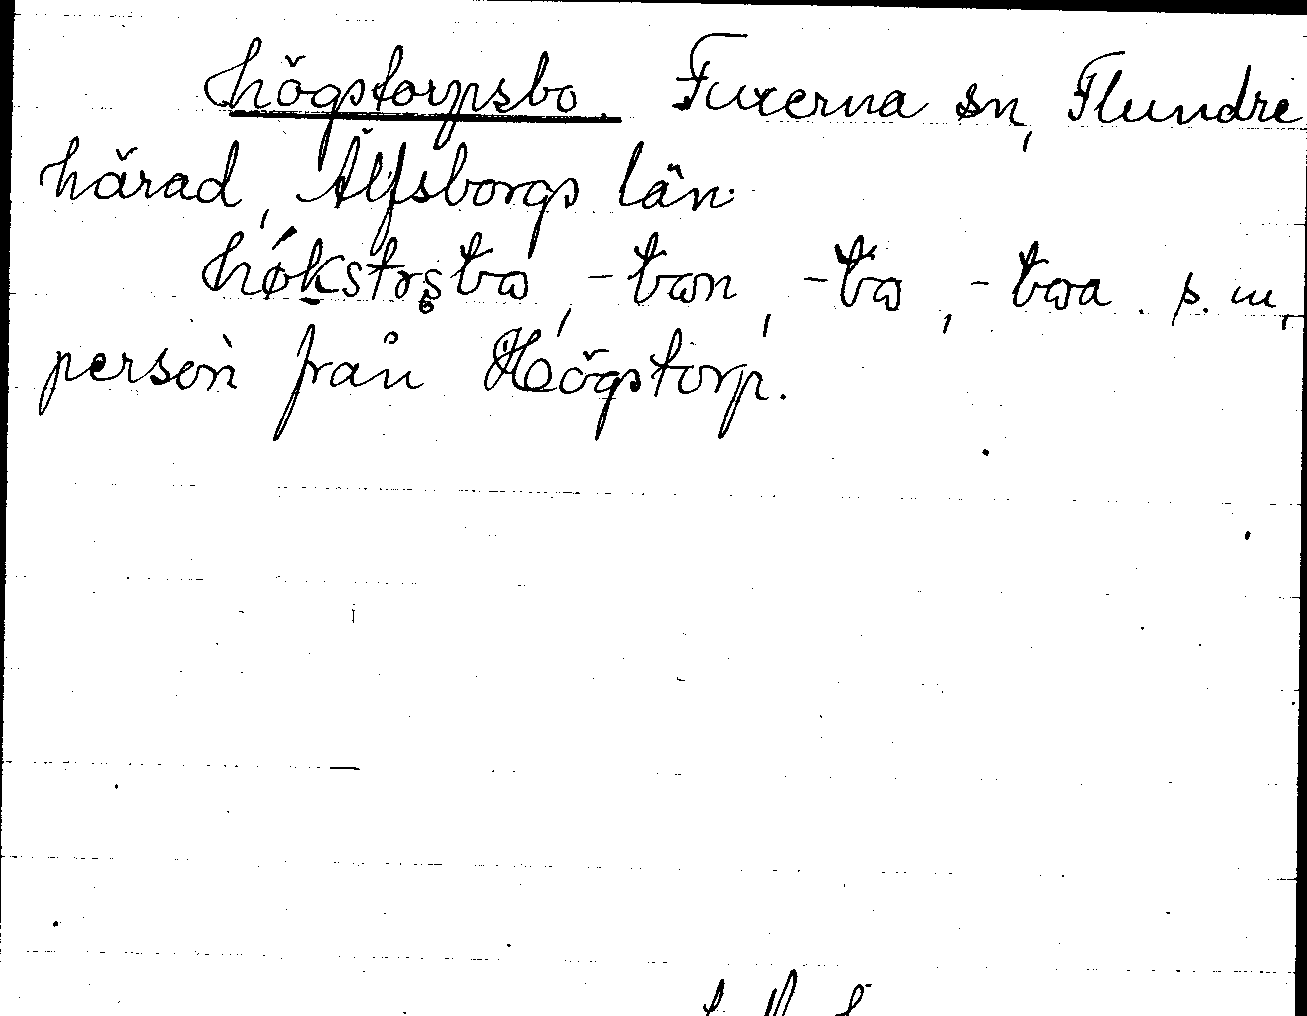 högstorpsbo. Fuxerna sn, Flundre
härad, Älfsborgs län.
-bon, -ba, -bona. s. m.,
person från Högstorp.